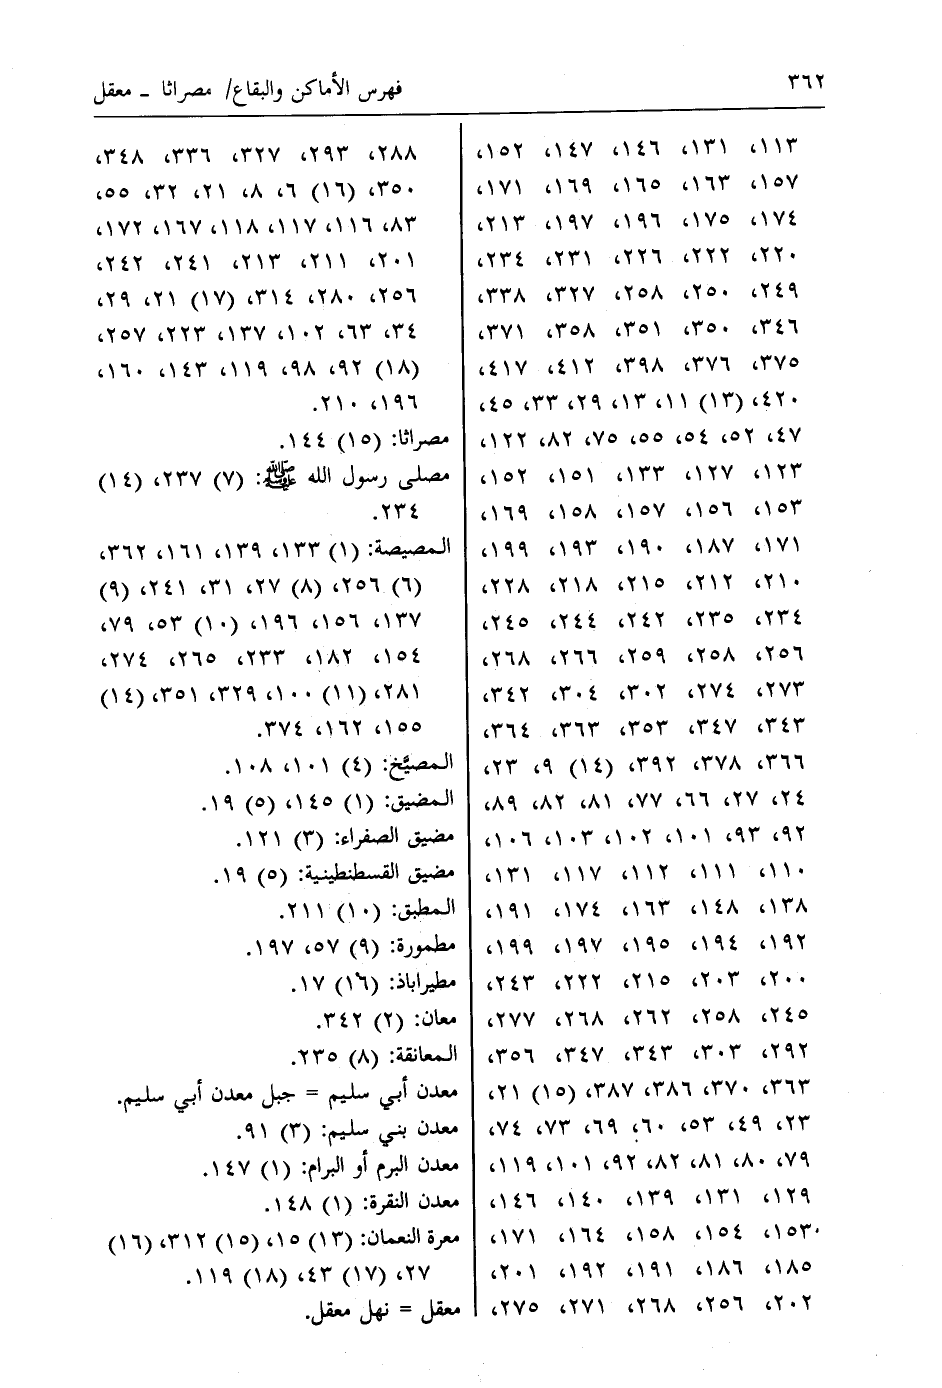 ٣٦٢
فهرس الأماكن والبقاع/ مصراثا ـ معقل
١١٣، ١٣١، ١٤٦، ١٤٧، ١٥٢،
١٥٧، ١٦٣، ١٦٥، ١٦٩، ١٧١،
١٧٤، ١٧٥، ١٩٦، ١٩٧، ٢١٣،
٢٢٠، ٢٢٢، ٢٢٦، ٢٣١، ٢٣٤،
٢٤٩، ٢٥٠، ٢٥٨، ٣٢٧، ٣٣٨،
٣٤٦، ٣٥٠، ٣٥١، ٣٥٨، ٣٧١،
٣٧٥، ٣٧٦، ٣٩٨، ٤١٢، ٤١٧،
٤٢٠، (١٣) ١١، ١٣، ٢٩، ٣٣، ٤٥،
٤٧، ٥٢، ٥٤، ٥٥، ٧٥، ٨٢، ١٢٢،
١٢٣، ١٢٧، ١٣٣، ١٥١، ١٥٢،
١٥٣، ١٥٦، ١٥٧، ١٥٨، ١٦٩،
١٧١، ١٨٧، ١٩٠، ١٩٣، ١٩٩،
٢١٠، ٢١٢، ٢١٥، ٢١٨، ٢٢٨،
٢٣٤، ٢٣٥، ٢٤٢، ٢٤٤، ٢٤٥،
٢٥٦، ٢٥٨، ٢٥٩، ٢٦٦، ٢٦٨،
٢٧٣، ٢٧٤، ٣٠٢، ٣٠٤، ٣٤٢،
٣٤٣، ٣٤٧، ٣٥٣، ٣٦٣، ٣٦٤،
٣٦٦، ٣٧٨، ٣٩٢، (١٤) ٩، ٢٣،
٢٤، ٢٧، ٦٦، ٧٧، ٨١، ٨٢، ٨٩،
٩٢، ٩٣، ١٠١، ١٠٢، ١٠٣، ١٠٦،
١١٠، ١١١، ١١٢، ١١٧، ١٣١،
١٣٨، ١٤٨، ١٦٣، ١٧٤، ١٩١،
١٩٢، ١٩٤، ١٩٥، ١٩٧، ١٩٩،
٢٠٠، ٢٠٣، ٢١٥، ٢٢٢، ٢٤٣،
٢٤٥، ٢٥٨، ٢٦٢، ٢٦٨، ٢٧٧،
٢٩٢، ٣٠٣، ٣٤٣، ٣٤٧، ٣٥٦،
٣٦٣، ٣٧٠، ٣٨٦، ٣٨٧، (١٥) ٢١،
٢٣، ٤٩، ٥٣، ٦٠، ٦٩، ٧٣، ٧٤،
٧٩، ٨٠، ٨١، ٨٢، ٩٢، ١٠١، ١١٩،
١٢٩، ١٣١، ١٣٩، ١٤٠، ١٤٦،
١٥٣، ١٥٤، ١٥٨، ١٦٤، ١٧١،
١٨٥، ١٨٦، ١٩١، ١٩٢، ٢٠١،
٢٠٢، ٢٥٦، ٢٦٨، ٢٧١، ٢٧٥،
٢٨٨، ٢٩٣، ٣٢٧، ٣٣٦، ٣٤٨،
٣٥٠، (١٦) ٦، ٨، ٢١، ٣٢، ٥٥،
٨٣، ١١٦، ١١٧، ١١٨، ١٦٧، ١٧٢،
٢٠١، ٢١١، ٢١٣، ٢٤١، ٢٤٢،
٢٥٦، ٢٨٠، ٣١٤، (١٧) ٢١، ٢٩،
٣٤، ٦٣، ١٠٢، ١٣٧، ٢٢٣، ٢٥٧،
(١٨) ٩٢، ٩٨، ١١٩، ١٤٣، ١٦٠،
١٩٦، ٢١٠.
مصراثا: (١٥) ١٤٤.
مصلى رسول الله ﷺ: (٧) ٢٣٧، (١٤)
٢٣٤.
المصيصة: (١) ١٣٣، ١٣٩، ١٦١، ٣٦٢،
(٦) ٢٥٦، (٨) ٢٧، ٣١، ٢٤١، (٩)
١٣٧، ١٥٦، ١٩٦، (١٠) ٥٣، ٧٩،
١٥٤، ١٨٢، ٢٣٣، ٢٦٥، ٢٧٤،
٢٨١، (١١) ١٠٠، ٣٢٩، ٣٥١، (١٤)
١٥٥، ١٦٢، ٣٧٤.
المصيَّخ: (٤) ١٠١، ١٠٨.
المضيق: (١) ١٤٥، (٥) ١٩.
مضيق الصفراء: (٣) ١٢١.
مضيق القسطنطينية: (٥) ١٩.
المطبق: (١٠) ٢١١.
مطمورة: (٩) ٥٧، ١٩٧.
مطيراباذ: (١٦) ١٧.
معان: (٢) ٣٤٢.
المعانقة: (٨) ٢٣٥.
معدن أبي سليم = جبل معدن أبي سليم.
معدن بني سليم: (٣) ٩١.
معدن البرم أو البرام: (١) ١٤٧.
معدن النقرة: (١) ١٤٨.
معرة النعمان: (١٣) ١٥، (١٥) ٣١٢، (١٦)
٢٧، (١٧) ٤٣، (١٨) ١١٩.
معقل = نهل معقل.